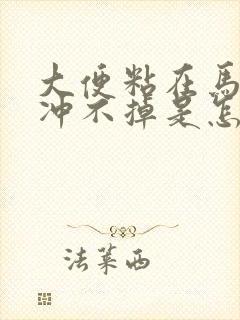 大便粘在馬
冲不掉是怎
法莱西